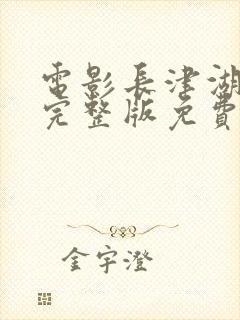 電影長津湖
完整版免費
金宇澄